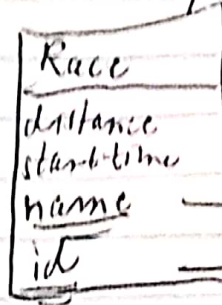 Race
distance
start-time
name
id